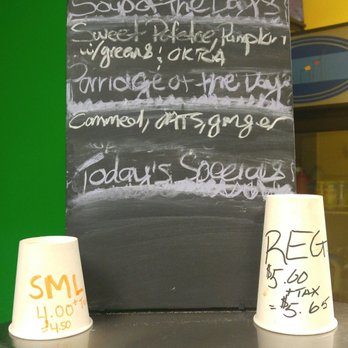 Soup of the Days
Sweet Potatoe, Pumpkin
w/greens & OKRA
Porridge of the Day
Cornmeal, OATS, ginger
Today's Specials
SML
4.00 + TX
= 4.50
REG
$5.00
+ TAX
$5.65